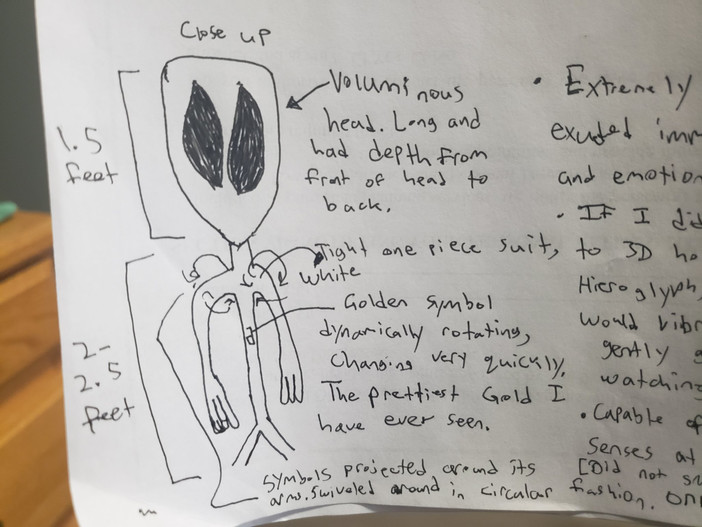 Close up
1.5
feet
Voluminous
head. Long and
had depth from
front of head to
back.
Tight one piece suit,
white
Golden symbol
dynamically rotating,
Changing very quickly.
The prettiest Gold I
have ever seen.
2-
2.5
feet
Symbols projected around its
arms. Swiveled around in circular fashion.
• Extremely
exuded
and
• If I
to 3D
Hieroglyph,
would
gently
watching
• Capable of
Senses at
[Did not